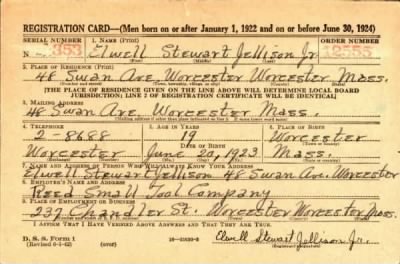 REGISTRATION CARD—(Men born on or after January 1, 1922 and on or before June 30, 1924)
SERIAL NUMBER 1. NAME (Print) ORDER NUMBER
N 353 Elwell Stewart Jellison Jr 12555
(First) (Middle) (Last)
2. PLACE OF RESIDENCE (Print)
48 Swan Ave. Worcester Worcester Mass.
[THE PLACE OF RESIDENCE GIVEN ON THE LINE ABOVE WILL DETERMINE LOCAL BOARD
JURISDICTION; LINE 2 OF REGISTRATION CERTIFICATE WILL BE IDENTICAL]
3. MAILING ADDRESS
48 Swan Ave Worcester Mass.
[Mailing address if other than place indicated on line 2. If same insert word same]
4. TELEPHONE 5. AGE IN YEARS 6. PLACE OF BIRTH
2-8688 19 Worcester
DATE OF BIRTH
Worcester June 20, 1923 Mass.
(Exchange) (Number) (Mo.) (Day) (Yr.) (State or country)
7. NAME AND ADDRESS OF PERSON WHO WILL ALWAYS KNOW YOUR ADDRESS
Elwell Stewart Jellison 48 Swan Ave. Worcester
8. EMPLOYER'S NAME AND ADDRESS
Reed Small Tool Company
9. PLACE OF EMPLOYMENT OR BUSINESS
237 Chandler St. Worcester Worcester Mass.
I AFFIRM THAT I HAVE VERIFIED ABOVE ANSWERS AND THAT THEY ARE TRUE.
D. S. S. Form 1
(Revised 6-9-42) (over) Elwell Stewart Jellison Jr.